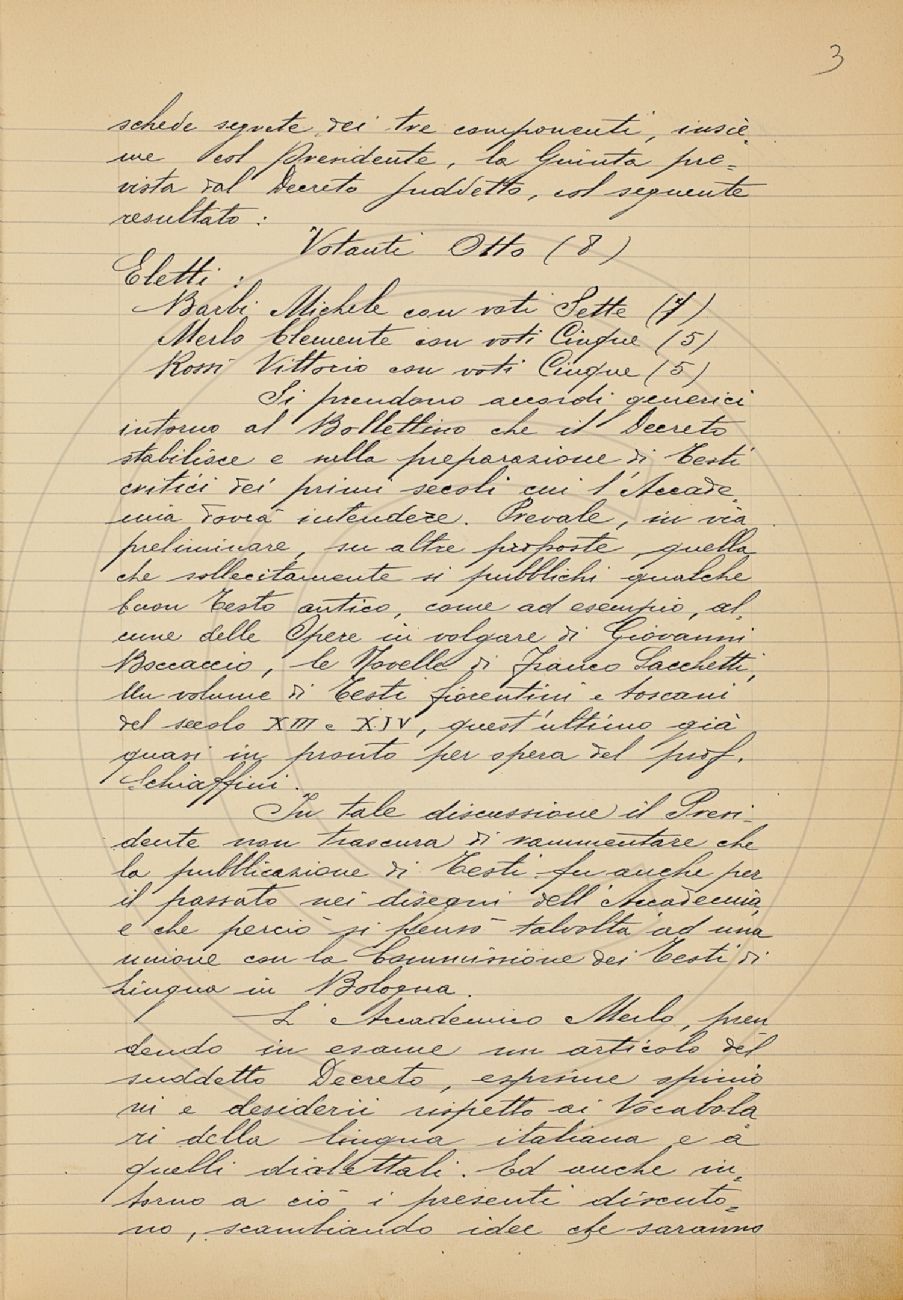 3
schede segrete dei tre componenti, insie
me col Presidente, la Giunta pre=
vista dal Decreto suddetto, col seguente
resultato:
Votanti Otto (8)
Eletti:
Barbi Michele con voti Sette (7)
Merlo Clemente con voti Cinque (5)
Rossi Vittorio con voti Cinque (5)
Si prendono accordi generici
intorno al Bollettino che il Decreto
stabilisce e nella preparazione di Testi
critici dei primi secoli cui l'Accade
mia dovrà intendere. Prevale, in via
preliminare, su altre proposte, quella
che sollecitamente si pubblichi qualche
buon Testo antico, come ad esempio, al=
cune delle Opere in volgare di Giovanni
Boccaccio, le Novelle di Franco Sacchetti,
Un volume di Testi fiorentini e toscani
del secolo XIII e XIV, quest'ultimo già
quasi in pronto per opera del prof.
Schiaffini.
In tale discussione il Presi-
dente non trascura di rammentare che
la pubblicazione di Testi fu anche per
il passato nei disegni dell'Accademia,
e che perciò si pensò talvolta ad una
unione con la Commissione dei Testi di
Lingua in Bologna.
L'Accademico Merlo, pren
dendo in esame un articolo del
suddetto Decreto, esprime opinio
ni e desiderii rispetto ai Vocabola
ri della lingua italiana e a
quelli dialettali. Ed anche in=
torno a ciò i presenti discuto=
no, scambiando idee che saranno